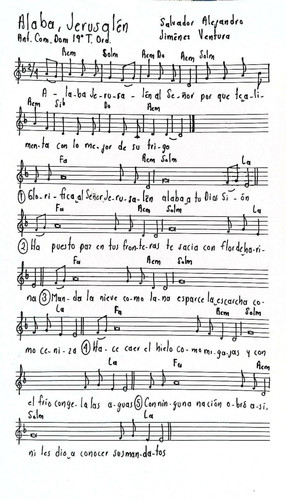 Alaba, Jerusalén
Salvador Alejandro
Ant. Com. Dom 19º T. Ord.
Jiménez Ventura
Rem Solm Rem Do Rem Solm
A - la-ba Je-ru-sa-lén al Se-ñor por que te a-li-
Rem Sib Do Rem
menta con lo me-jor de su tri-go
Fa Rem Solm La
① Glo-ri-fica al Señor Je-ru-sa-lén alaba a tu Dios Si-ón
Fa Rem Solm La
② Ha puesto paz en tus fron-te-ras te sacia con flor de ha-ri-
Fa Rem Solm
na ③ Man-da la nieve co-mo la-na esparce la escarcha co-
La Fa Rem Solm
mo ce-ni-sa ④ Ha-ce caer el hielo co-mo mi-ga-jas y con
La Fa Rem
el frío conge-la las a-guas ⑤ Con nin-guna nación o-bró a-sí,
Solm La
ni les dio a conocer sus man-da-tos